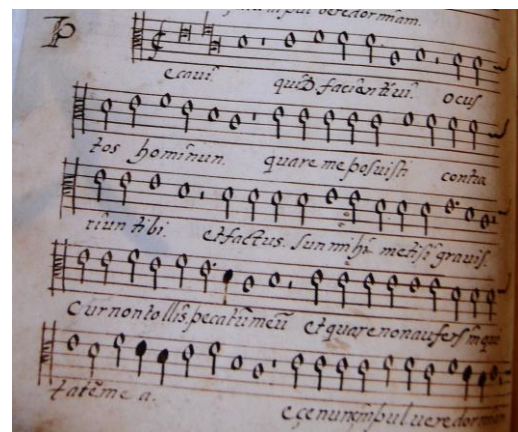 pul vere dormiam.
P
ecaui. quid faciam tiui. O cus
tos hominun. quare me posuisti contra
riun tibi. et factus. sun mihi metisi grauis.
Cur non tollis pecatū meū et quare non aufers iniqui
tatē me a. eçe nunc im pul uere dormiam